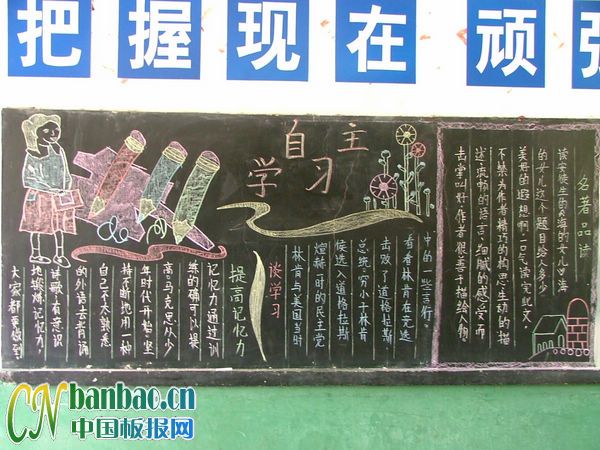 把握现在 顽强
自主
学习
名著品读
读安徒生的《海的女儿》《海
的女儿》这个题目给人多少
美好的遐想啊!一口气读完此文。
不禁为作者精巧的构思生动的描
述流畅的语言细腻的感受而
击掌叫好。作者很善于描绘人物。
谈学习
林肯与美国当时
煊赫一时的民主党
候选人道格拉斯
总统。穷小子林肯
击败了道格拉斯
看看林肯在竞选
中的一些言行。
提高记忆力
记忆力通过训
练的确可以提
高。马克思从少
年时代开始坚
持不断地用一种
自己不太熟悉
的外语去背诵
诗歌。有意识
地锻炼记忆力。
大家都要做到
CNbanbao.cn
中国板报网